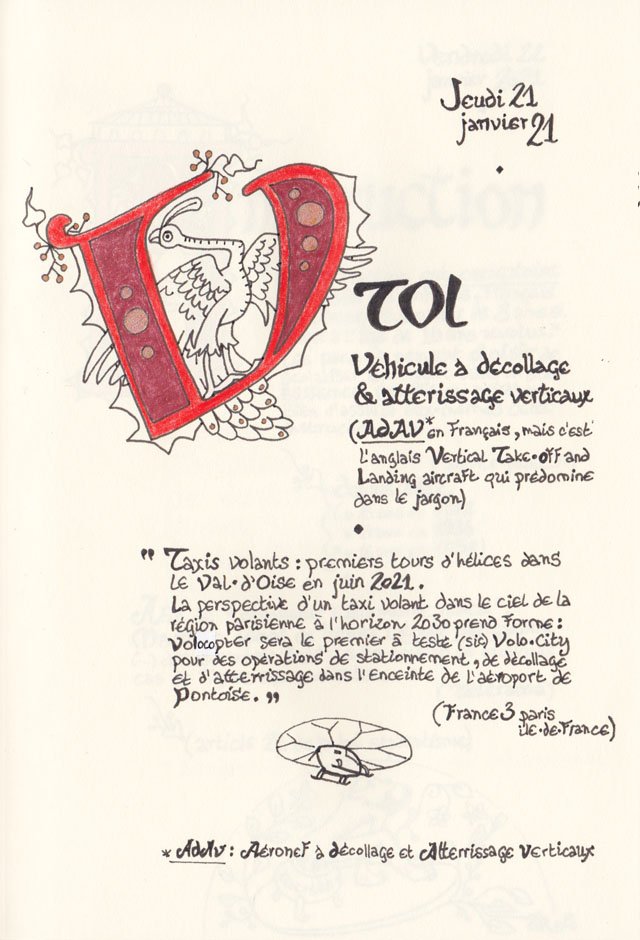 Jeudi 21
janvier 21
VTOL
Véhicule à décollage
& atterissage verticaux
(AdAV* en Français, mais c'est
l'anglais Vertical Take-off and
Landing aircraft qui prédomine
dans le jargon)
" Taxis volants : premiers tours d'hélices dans
le Val-d'Oise en juin 2021.
La perspective d'un taxi volant dans le ciel de la
région parisienne à l'horizon 2030 prend forme :
Volocopter sera le premier à testé (sic) Volo-City
pour des opérations de stationnement, de décollage
et d'atterrissage dans l'enceinte de l'aéroport de
Pontoise. "
(France 3 paris
île-de-France)
* AdAV : Aéronef à décollage et Atterrissage Verticaux